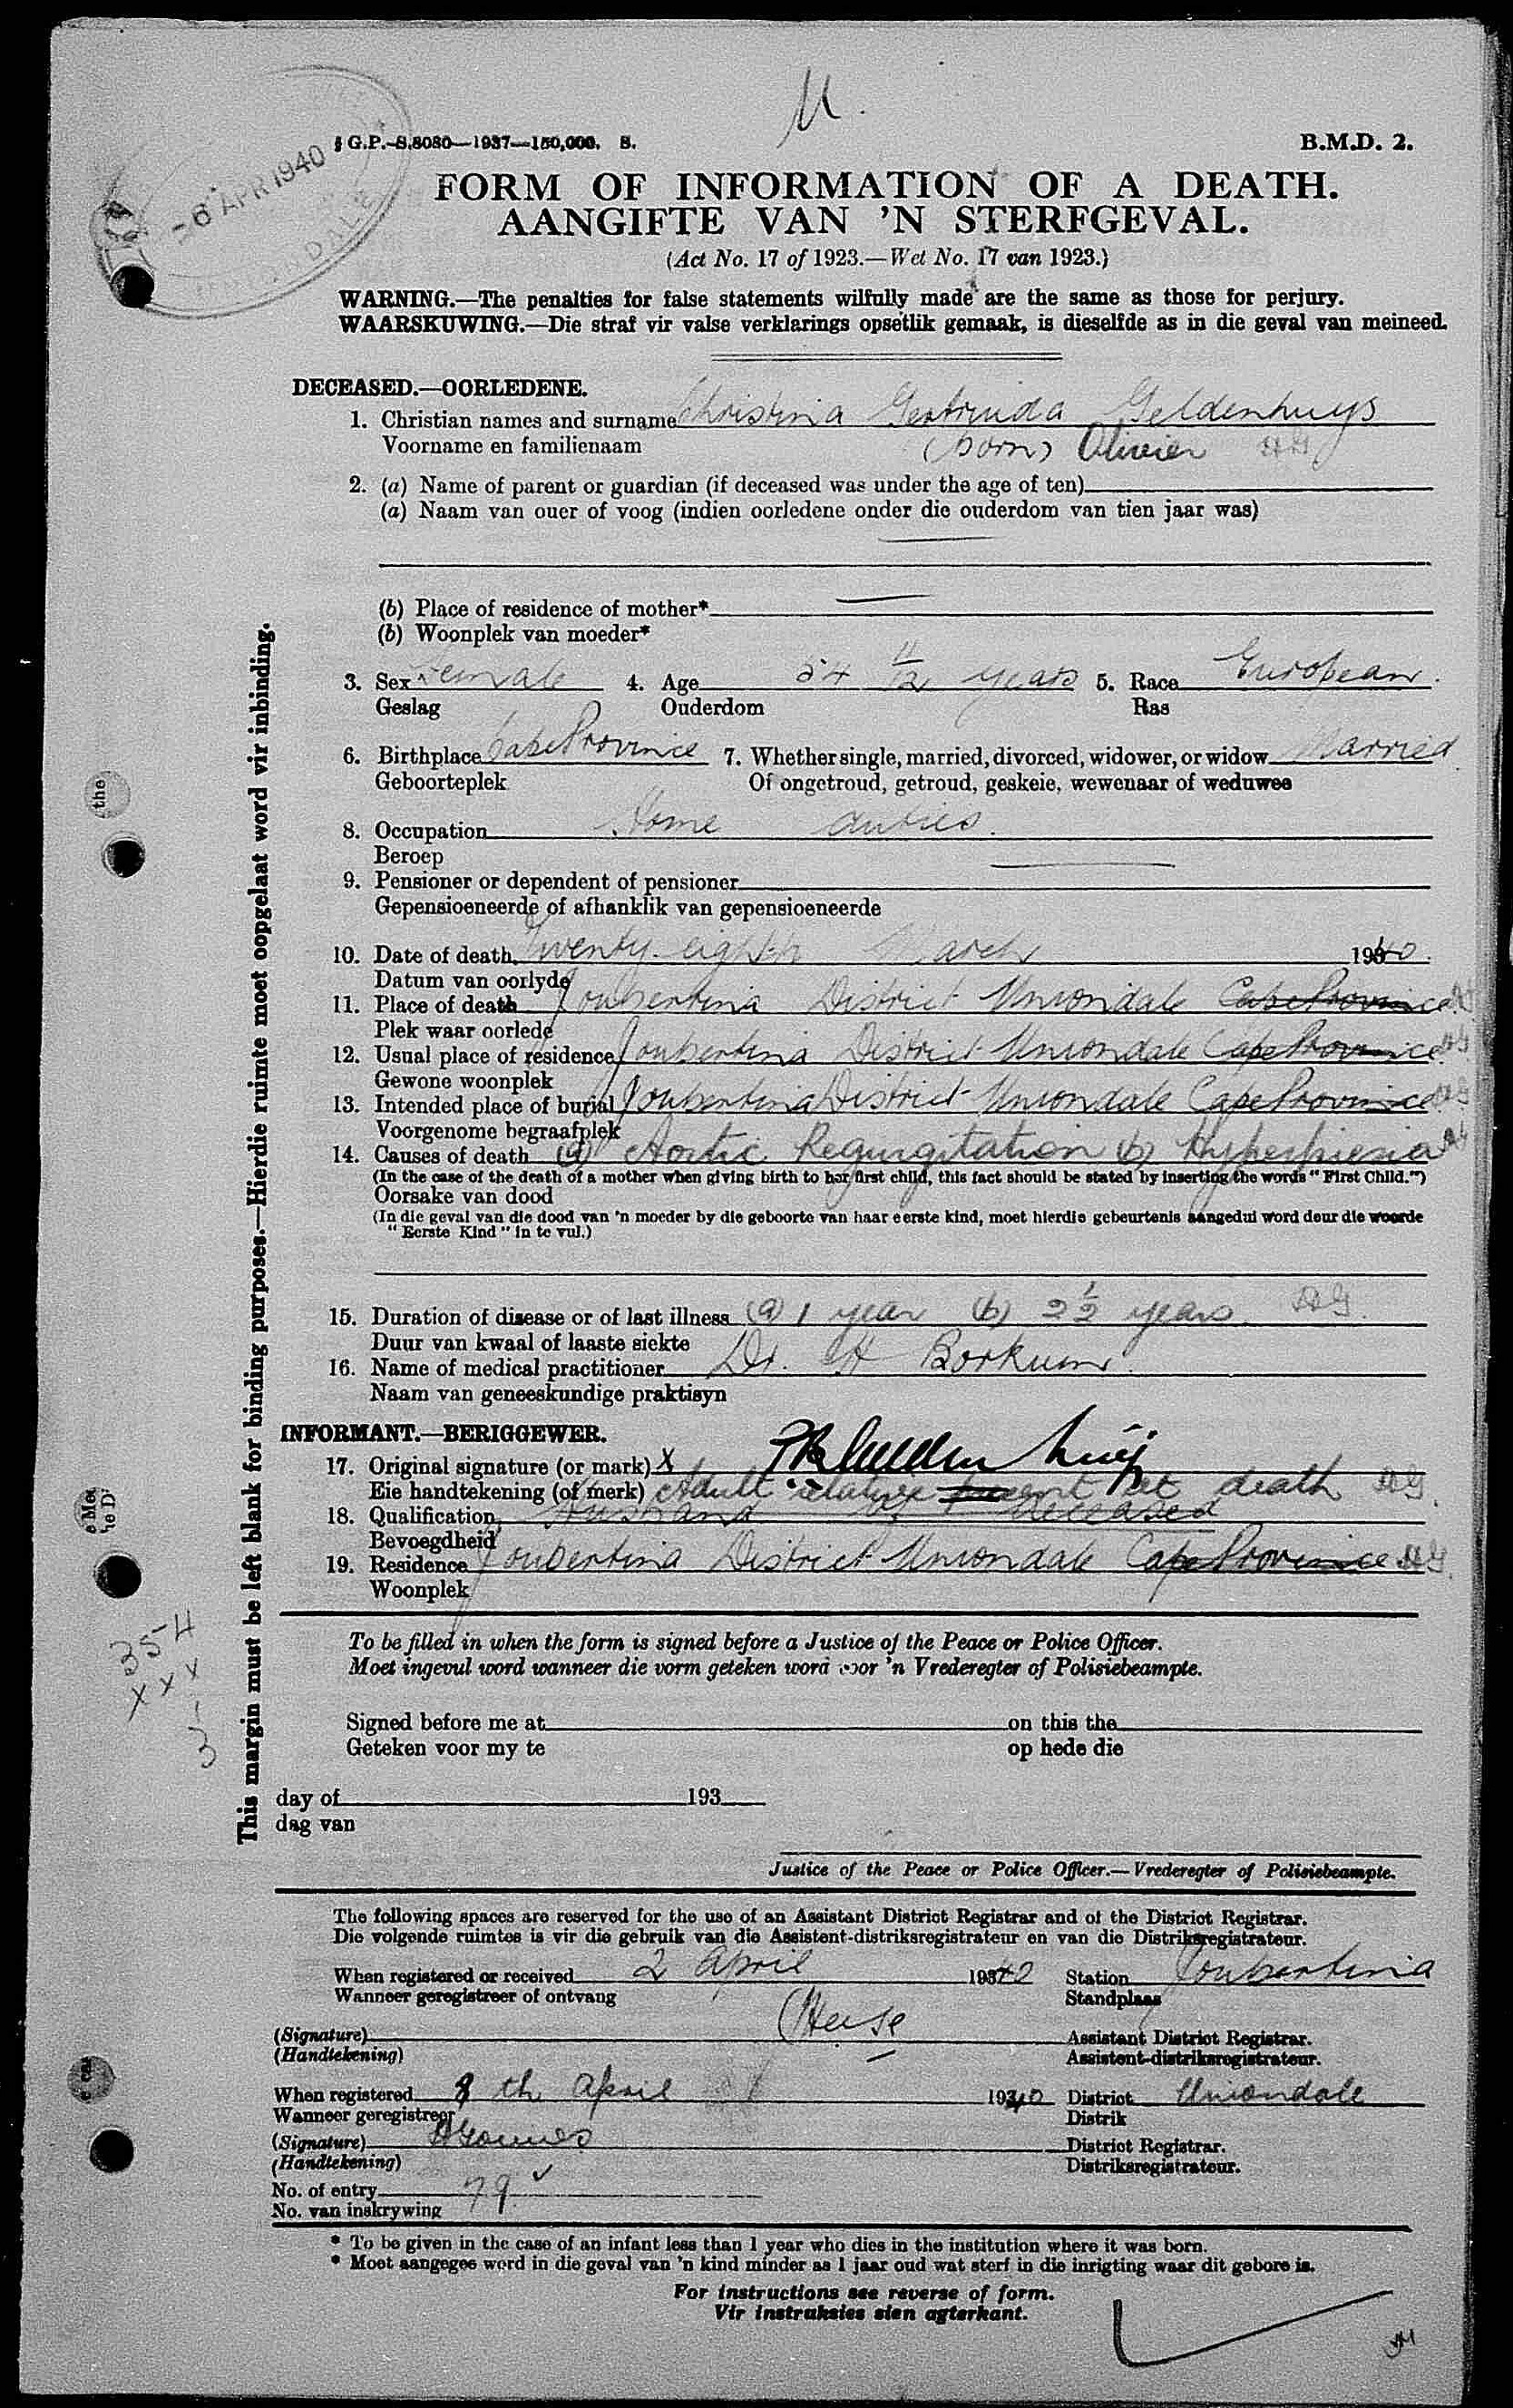 U.
G.P.-S.8080—1937—150,000. S.
B.M.D. 2.
-6 APR 1940
FORM OF INFORMATION OF A DEATH.
AANGIFTE VAN 'N STERFGEVAL.
(Act No. 17 of 1923.—Wet No. 17 van 1923.)
WARNING.—The penalties for false statements wilfully made are the same as those for perjury.
WAARSKUWING.—Die straf vir valse verklarings opsetlik gemaak, is dieselfde as in die geval van meineed.
DECEASED.—OORLEDENE.
1. Christian names and surname Christina Gertruida Geldenhuys
Voorname en familienaam (born) Olivier
2. (a) Name of parent or guardian (if deceased was under the age of ten)
(a) Naam van ouer of voog (indien oorledene onder die ouderdom van tien jaar was)
(b) Place of residence of mother*
(b) Woonplek van moeder*
3. Sex Female 4. Age 54 11/12 years 5. Race European.
Geslag Ouderdom Ras
6. Birthplace Cape Province 7. Whether single, married, divorced, widower, or widow Married
Geboorteplek Of ongetroud, getroud, geskeie, wewenaar of weduwee
8. Occupation Home duties.
Beroep
9. Pensioner or dependent of pensioner
Gepensioeneerde of afhanklik van gepensioeneerde
10. Date of death Twenty-eighth March 1940.
Datum van oorlyde
11. Place of death Joubertina District Uniondale Cape Province
Plek waar oorlede
12. Usual place of residence Joubertina District Uniondale Cape Province
Gewone woonplek
13. Intended place of burial Joubertina District Uniondale Cape Province
Voorgenome begraafplek
14. Causes of death (a) Aortic Regurgitation (b) Hyperpiesia
(In the case of the death of a mother when giving birth to her first child, this fact should be stated by inserting the words "First Child.")
Oorsake van dood
(In die geval van die dood van 'n moeder by die geboorte van haar eerste kind, moet hierdie gebeurtenis aangedui word deur die woorde
"Eerste Kind" in te vul.)
15. Duration of disease or of last illness (a) 1 year (b) 2½ years.
Duur van kwaal of laaste siekte
16. Name of medical practitioner Dr. H Borkum.
Naam van geneeskundige praktisyn
INFORMANT.—BERIGGEWER.
17. Original signature (or mark) X
Eie handtekening (of merk) Adult relative present at death
18. Qualification Husband of Deceased
Bevoegdheid
19. Residence Joubertina District Uniondale Cape Province
Woonplek
To be filled in when the form is signed before a Justice of the Peace or Police Officer.
Moet ingevul word wanneer die vorm geteken word voor 'n Vrederegter of Polisiebeampte.
Signed before me at on this the
Geteken voor my te op hede die
day of 193
dag van
Justice of the Peace or Police Officer.—Vrederegter of Polisiebeampte.
The following spaces are reserved for the use of an Assistant District Registrar and of the District Registrar.
Die volgende ruimtes is vir die gebruik van die Assistent-distriksregistrateur en van die Distriksregistrateur.
When registered or received 2 April 1940 Station Joubertina
Wanneer geregistreer of ontvang Standplaas
(Signature) Assistant District Registrar.
(Handtekening) Assistent-distriksregistrateur.
When registered 8th April 1940 District Uniondale
Wanneer geregistreer Distrik
(Signature) District Registrar.
(Handtekening) Distriksregistrateur.
No. of entry 79
No. van inskrywing
* To be given in the case of an infant less than 1 year who dies in the institution where it was born.
* Moet aangegee word in die geval van 'n kind minder as 1 jaar oud wat sterf in die inrigting waar dit gebore is.
For instructions see reverse of form.
Vir instruksies sien agterkant.
This margin must be left blank for binding purposes.—Hierdie ruimte moet oopgelaat word vir inbinding.
the
354
xxx
3